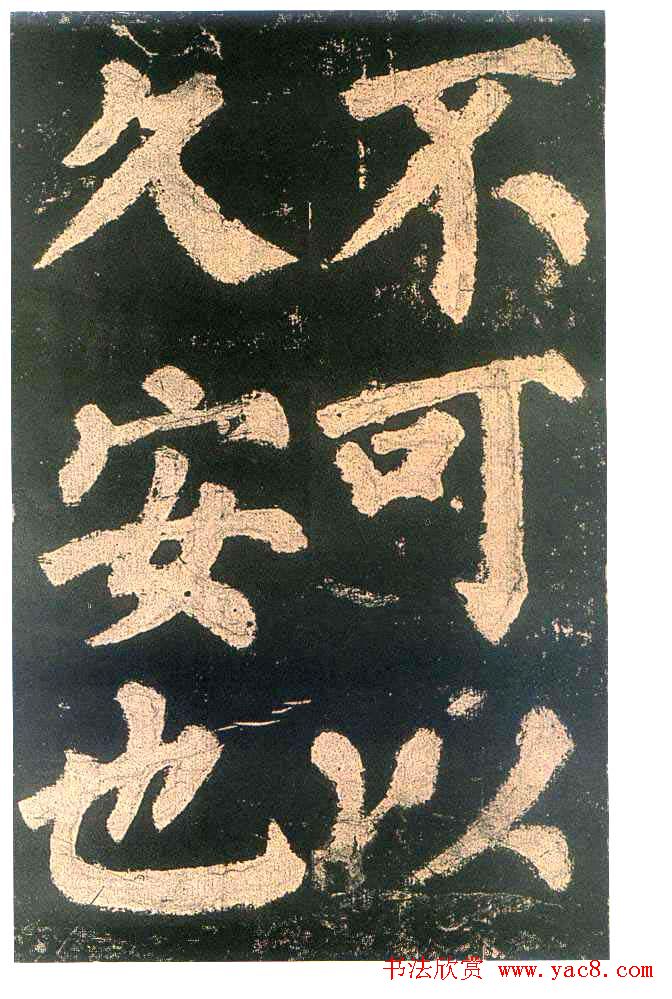 不可以
久安也
书法欣赏 www.yac8.com